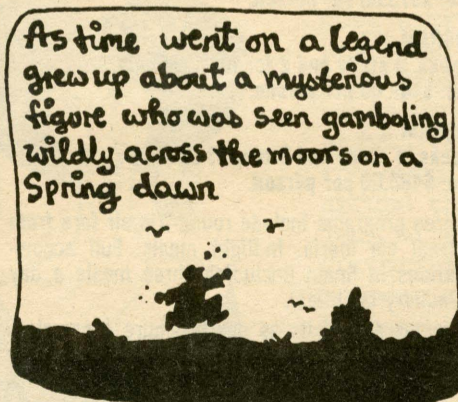 As time went on a legend
grew up about a mysterious
figure who was seen gamboling
wildly across the moors on a
Spring dawn